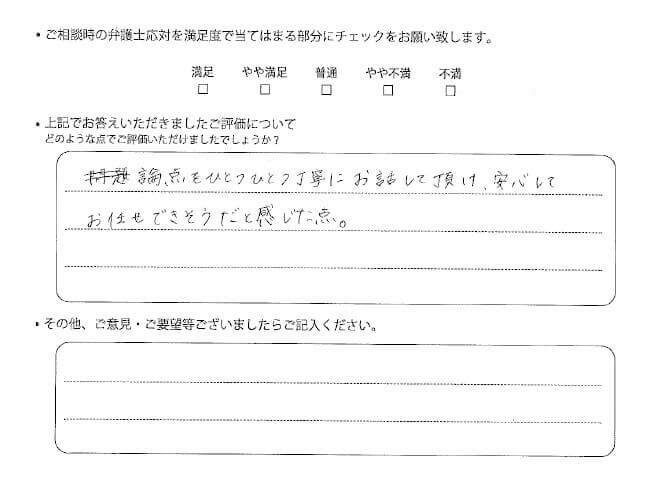 ・ご相談時の弁護士応対を満足度で当てはまる部分にチェックをお願い致します。
満足 やや満足 普通 やや不満 不満
□ □ □ □ □
・上記でお答えいただきましたご評価について
どのような点でご評価いただけましたでしょうか?
論点もひとつひとつ丁寧にお話して頂け、安心して
お任せできそうだと感じた点。
・その他、ご意見・ご要望等ございましたらご記入ください。